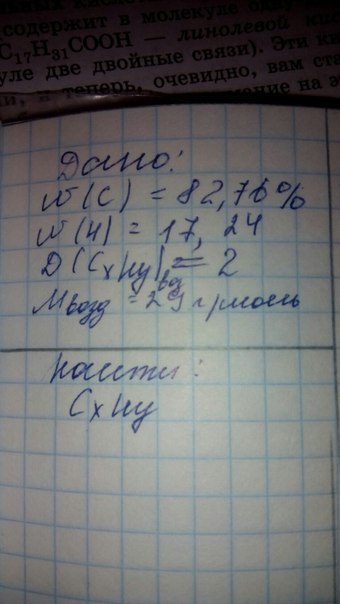 содержит в молекуле
C₁₇H₃₁COOH — линолевой
две двойные связи). Эти
теперь, очевидно, вам
на
Дано:
w(C) = 82,76%
w(H) = 17,24
D(CxHy)возд = 2
Mвозд = 29 г/моль
Найти:
CxHy